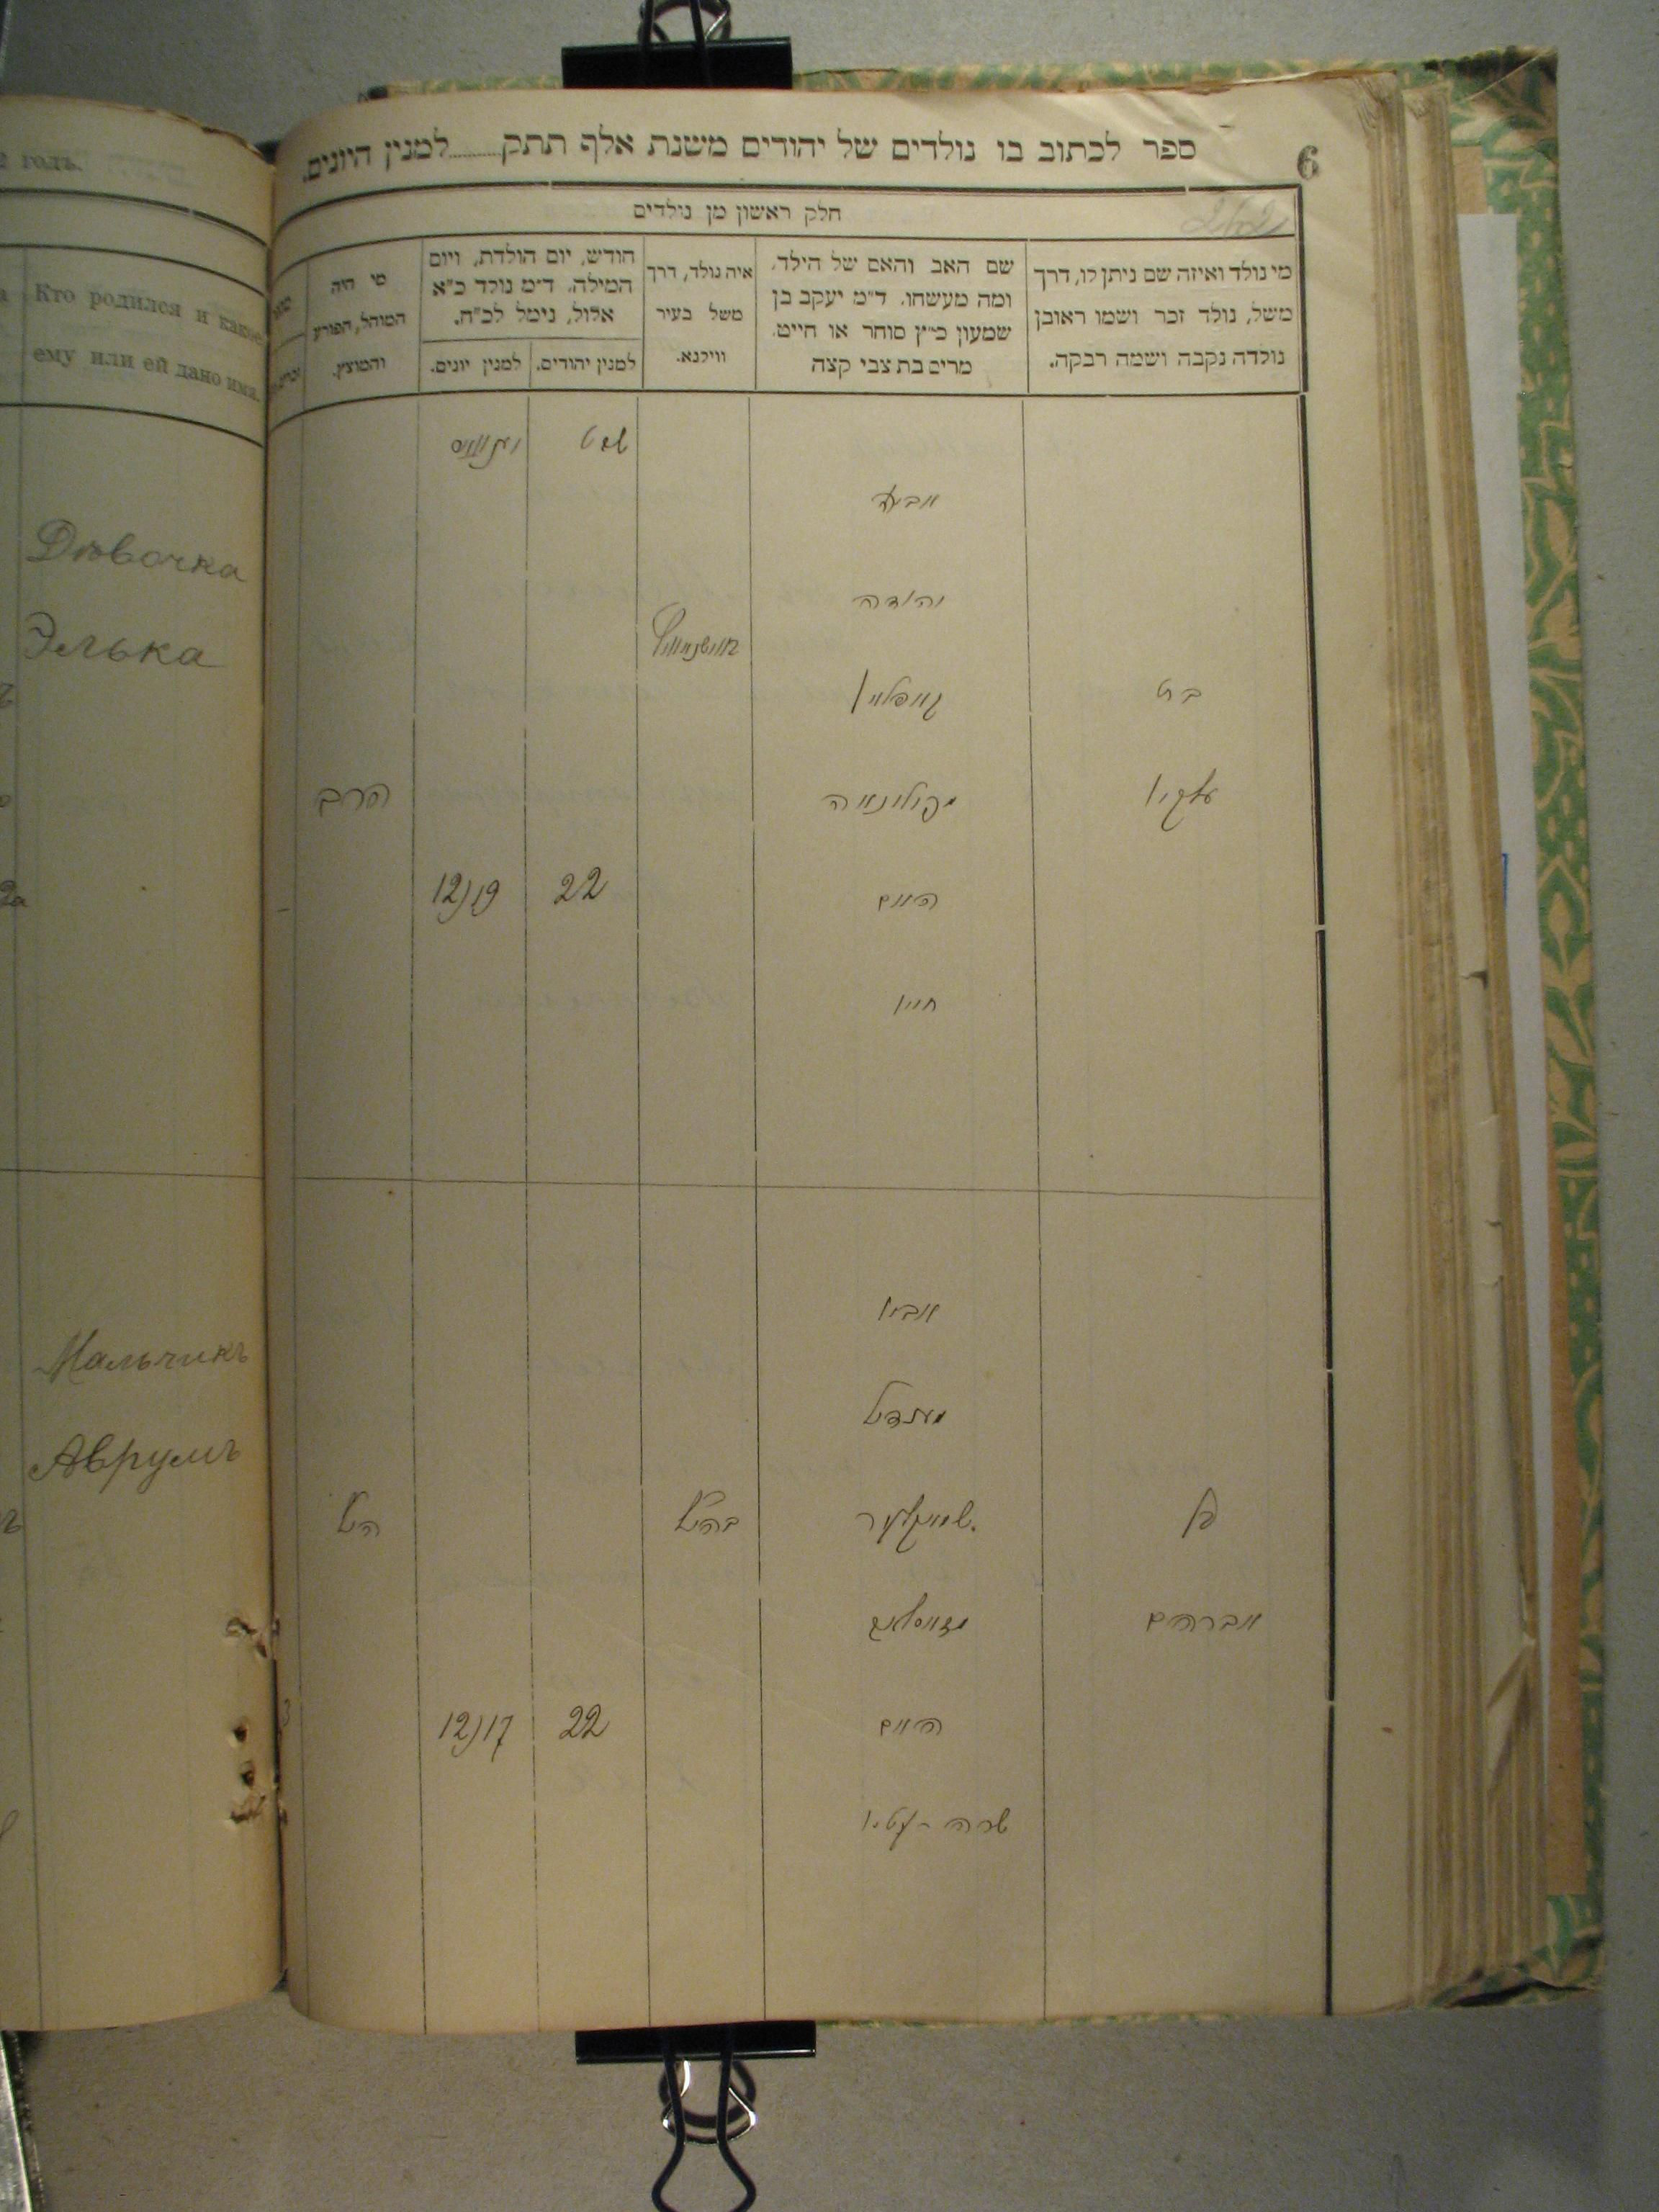 ספר לכתוב בו נולדים של יהודים משנת אלף תתק......למנין היונים.
6
262
חלק ראשון מן נולדים
מי נולד ואיזה שם ניתן לו, דרך
משל, נולד זכר ושמו ראובן
נולדה נקבה ושמה רבקה.
שם האב והאם של הילד.
ומה מעשהו. ד״מ יעקב בן
שמעון כ״ץ סוחר או חייט.
מרים בת צבי קצה
איה נולד, דרך
משל בעיר
ווילנא.
חודש, יום הולדת, ויום
המילה. ד״מ נולד כ״א
אלול, נימל לכ״ח.
למנין יהודים.
למנין יונים.
מי היה
המוהל, הפורע
והמוצץ.
שבט
יהודה
בת
הרב
22
12/19
האם
חיי׳
מענדיל
בן
בהנ״ל
הנ״ל
אברהם
האם
22
12/17
שרה
годъ.
Кто родился и какое
ему или ей дано имя.
Дѣвочка
Элька
Мальчикъ
Аврумъ